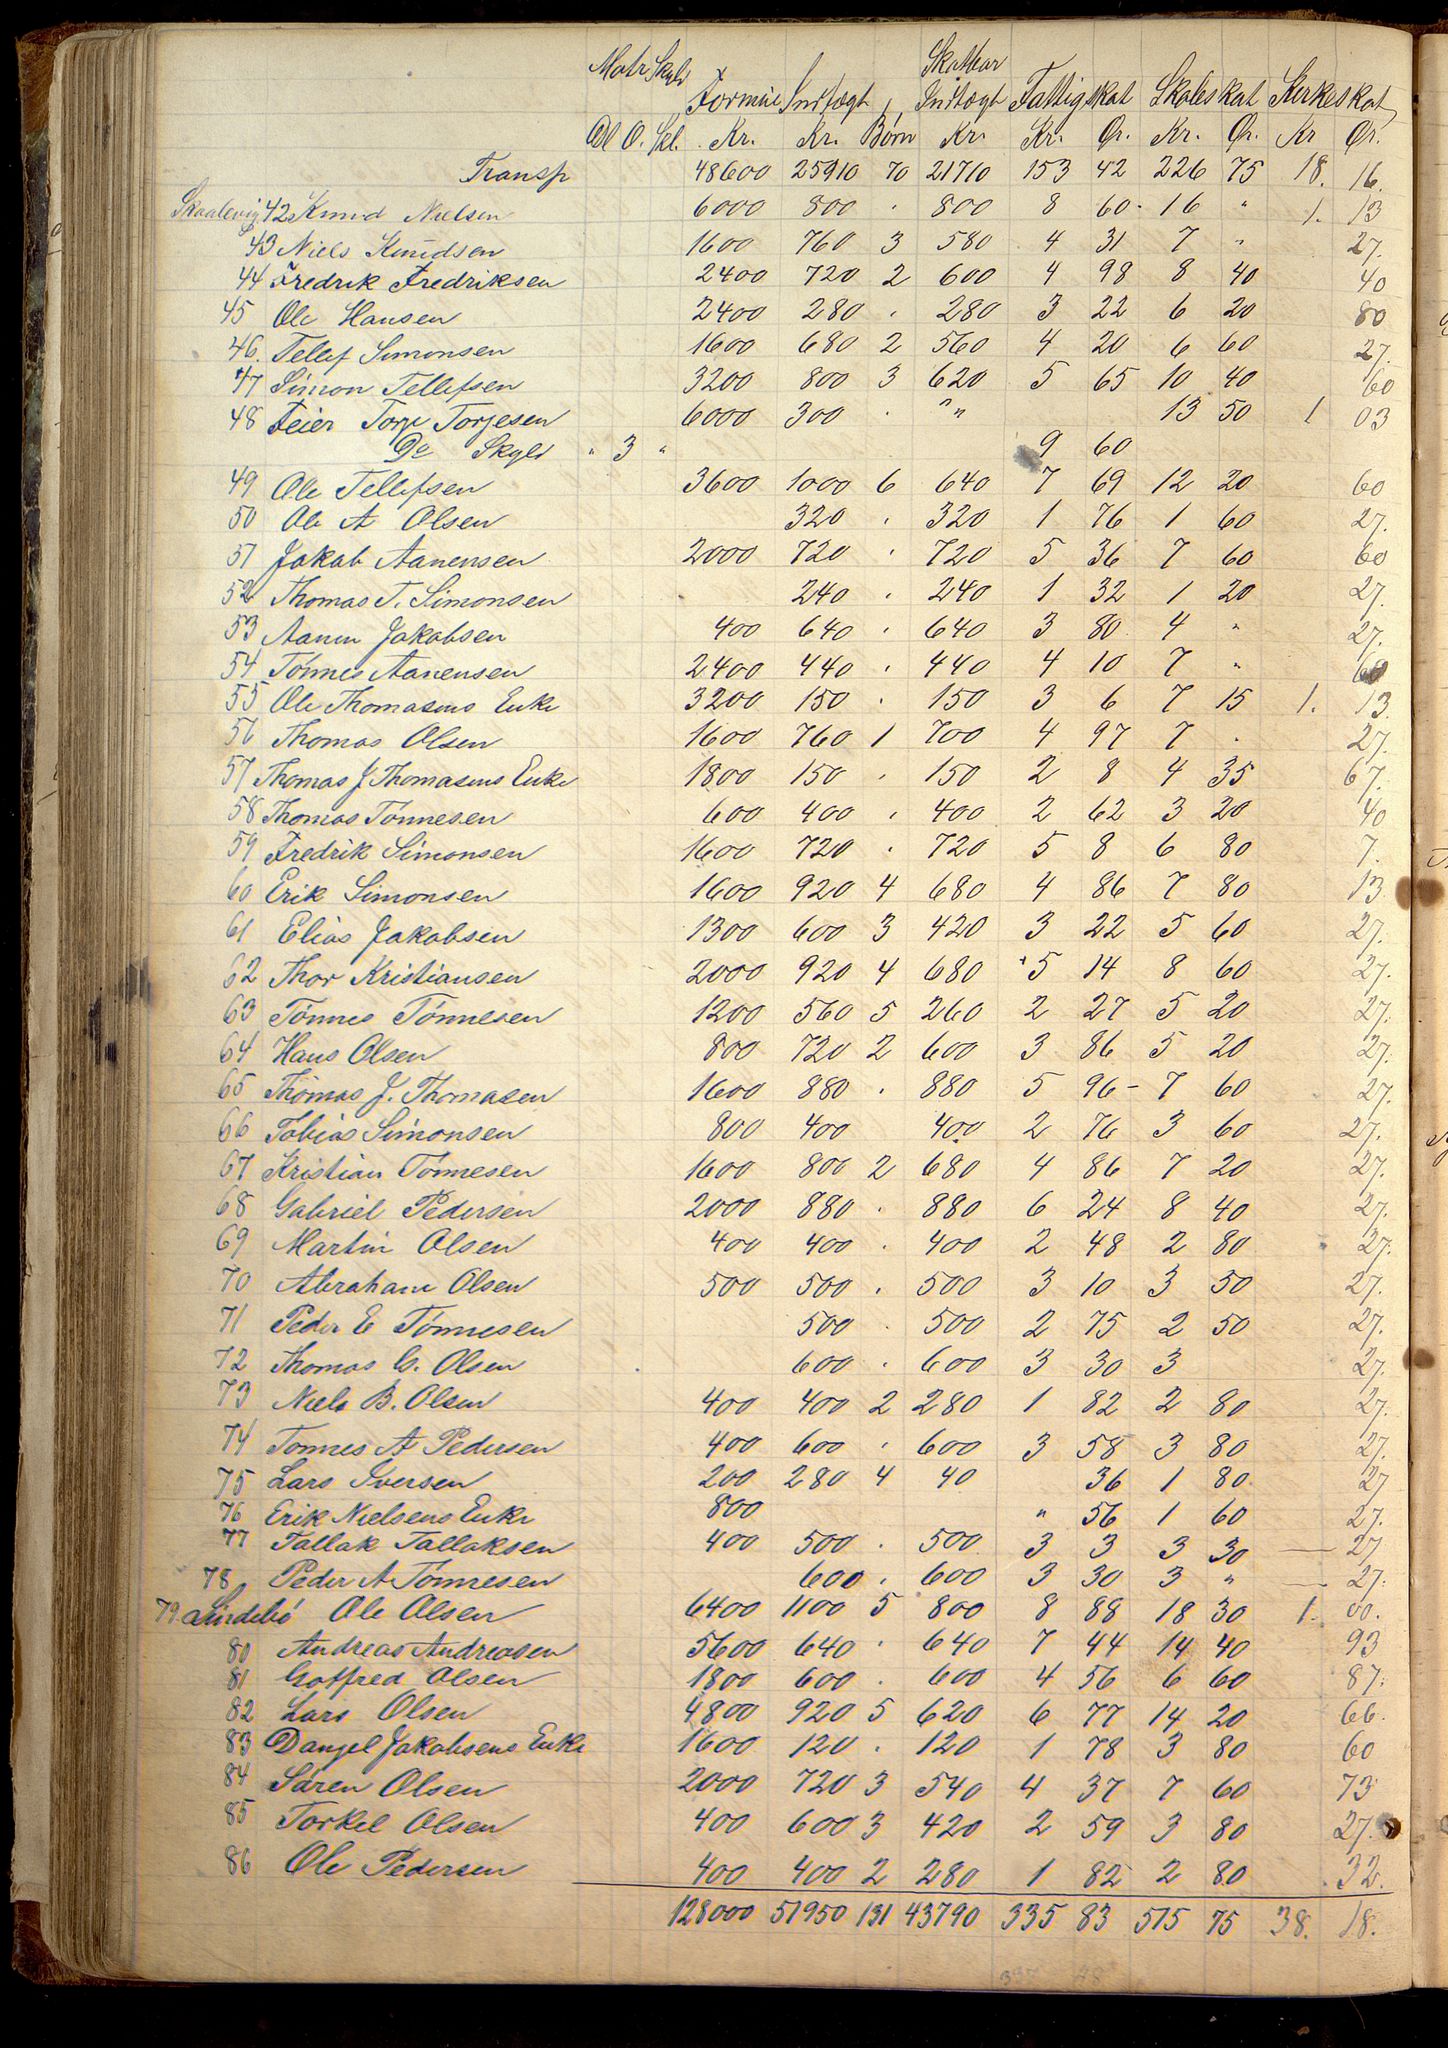 Matr Skyld Formue Indtægt Skatbar Indtægt Fattigskat Skoleskat Kirkeskat
Dl O. Skl. Kr. Kr. Børn Kr. Kr. Ør. Kr. Ør. Kr Ør.
Transp 48600 25910 70 21710 153 42 226 75 18. 16.
Skaalevig 42 Knud Nielsen 6000 800 . 800 8 60 - 16 " 1. 13
43 Niels Knudsen 1600 760 3 580 4 31 7 " 27.
44 Fredrik Fredriksen 2400 720 2 600 4 98 8 40 40
45 Ole Hansen 2400 280 . 280 3 22 6 20 80
46. Tellef Simonsen 1600 680 2 560 4 20 6 60 27.
47 Simon Tellefsen 3200 800 3 620 5 65 10 40 60
48 Feier Torje Torjesen 6000 300 . " " 13 50 1 03
Do Skyld " 3 " 9 60
49 Ole Tellefsen 3600 1000 6 640 7 69 12 20 60
50 Ole A Olsen 320 . 320 1 76 1 60 27.
51 Jakob Aanensen 2000 720 . 720 5 36 7 60 60
52 Thomas T. Simonsen 240 . 240 1 32 1 20 27.
53 Aanen Jakobsen 400 640 . 640 3 80 4 " 27.
54 Tönnes Aanensen 2400 440 . 440 4 10 7 " 60
55 Ole Thomasens Enke 3200 150 . 150 3 6 7 15 1. 13.
56 Thomas Olsen 1600 760 1 700 4 97 7 . 27.
57 Thomas J Thomasens Enke 1800 150 . 150 2 8 4 35 67.
58 Thomas Tönnesen 600 400 . 400 2 62 3 20 40
59 Fredrik Simonsen 1600 720 . 720 5 8 6 80 7.
60 Erik Simonsen 1600 920 4 680 4 86 7 80 13
61 Elias Jakobsen 1300 600 3 420 3 22 5 60 27.
62 Thor Kristiansen 2000 920 4 680 5 14 8 60 27.
63 Tönnes Tönnesen 1200 560 5 260 2 27 5 20 27.
64 Hans Olsen 800 720 2 600 3 86 5 20 27.
65 Thomas J. Thomasen 1600 880 . 880 5 96 - 7 60 27.
66 Tobias Simonsen 800 400 400 2 76 3 60 27.
67 Kristian Tönnesen 1600 800 2 680 4 86 7 20 27.
68 Gabriel Pedersen 2000 880 . 880 6 24 8 40 27.
69 Martin Olsen 400 400 . 400 2 48 2 80 27.
70 Abraham Olsen 500 500 . 500 3 10 3 50 27.
71 Peder E Tönnesen 500 . 500 2 75 2 50 27.
72 Thomas G. Olsen 600 . 600 3 30 3 27.
73 Niels B. Olsen 400 400 2 280 1 82 2 80 27.
74 Tönnes A Pedersen 400 600 . 600 3 58 3 80 27.
75 Lars Iversen 200 280 4 40 36 1 80 27
76 Erik Nielsens Enke 800 " 56 1 60 27.
77 Tallak Tallaksen 400 500 . 500 3 3 3 30 — 27
78 Peder A Tönnesen 600 . 600 3 30 3 " — 27.
79 Lindebö Ole Olsen 6400 1100 5 800 8 88 18 30 1. 00.
80 Andreas Andreasen 5600 640 . 640 7 44 14 40 93
81 Gotfred Olsen 1800 600 . 600 4 56 6 60 87.
82 Lars Olsen 4800 920 5 620 6 77 14 20 66.
83 Dangel Jakobsens Enke 1600 120 . 120 1 78 3 80 60
84 Sören Olsen 2000 720 3 540 4 37 7 60 73
85 Torkel Olsen 400 600 3 420 2 59 3 80 27.
86 Ole Pedersen 400 400 2 280 1 82 2 80 32.
128000 51950 131 43790 335 83 515 75 38. 18.